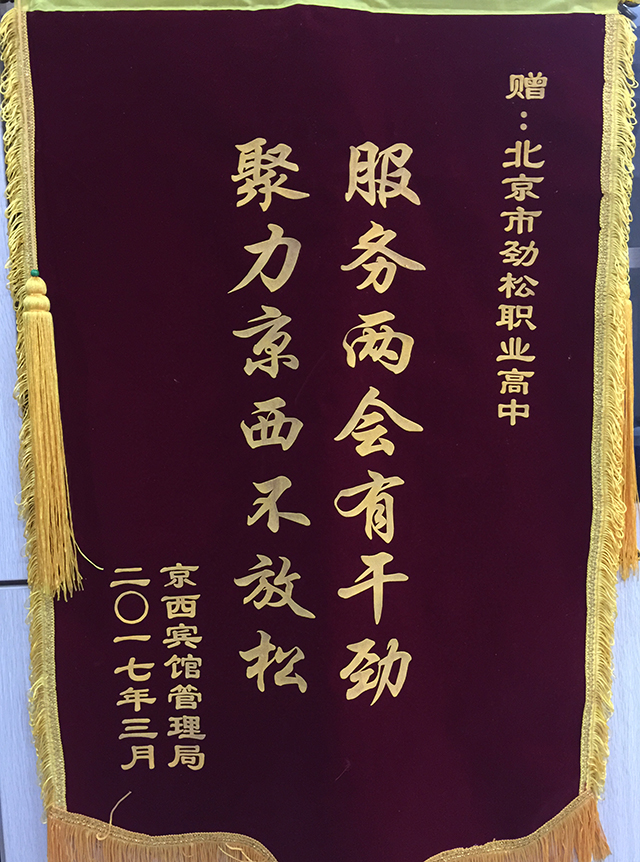 赠：北京市劲松职业高中
服务两会有干劲
聚力京西不放松
京西宾馆管理局
二〇一七年三月